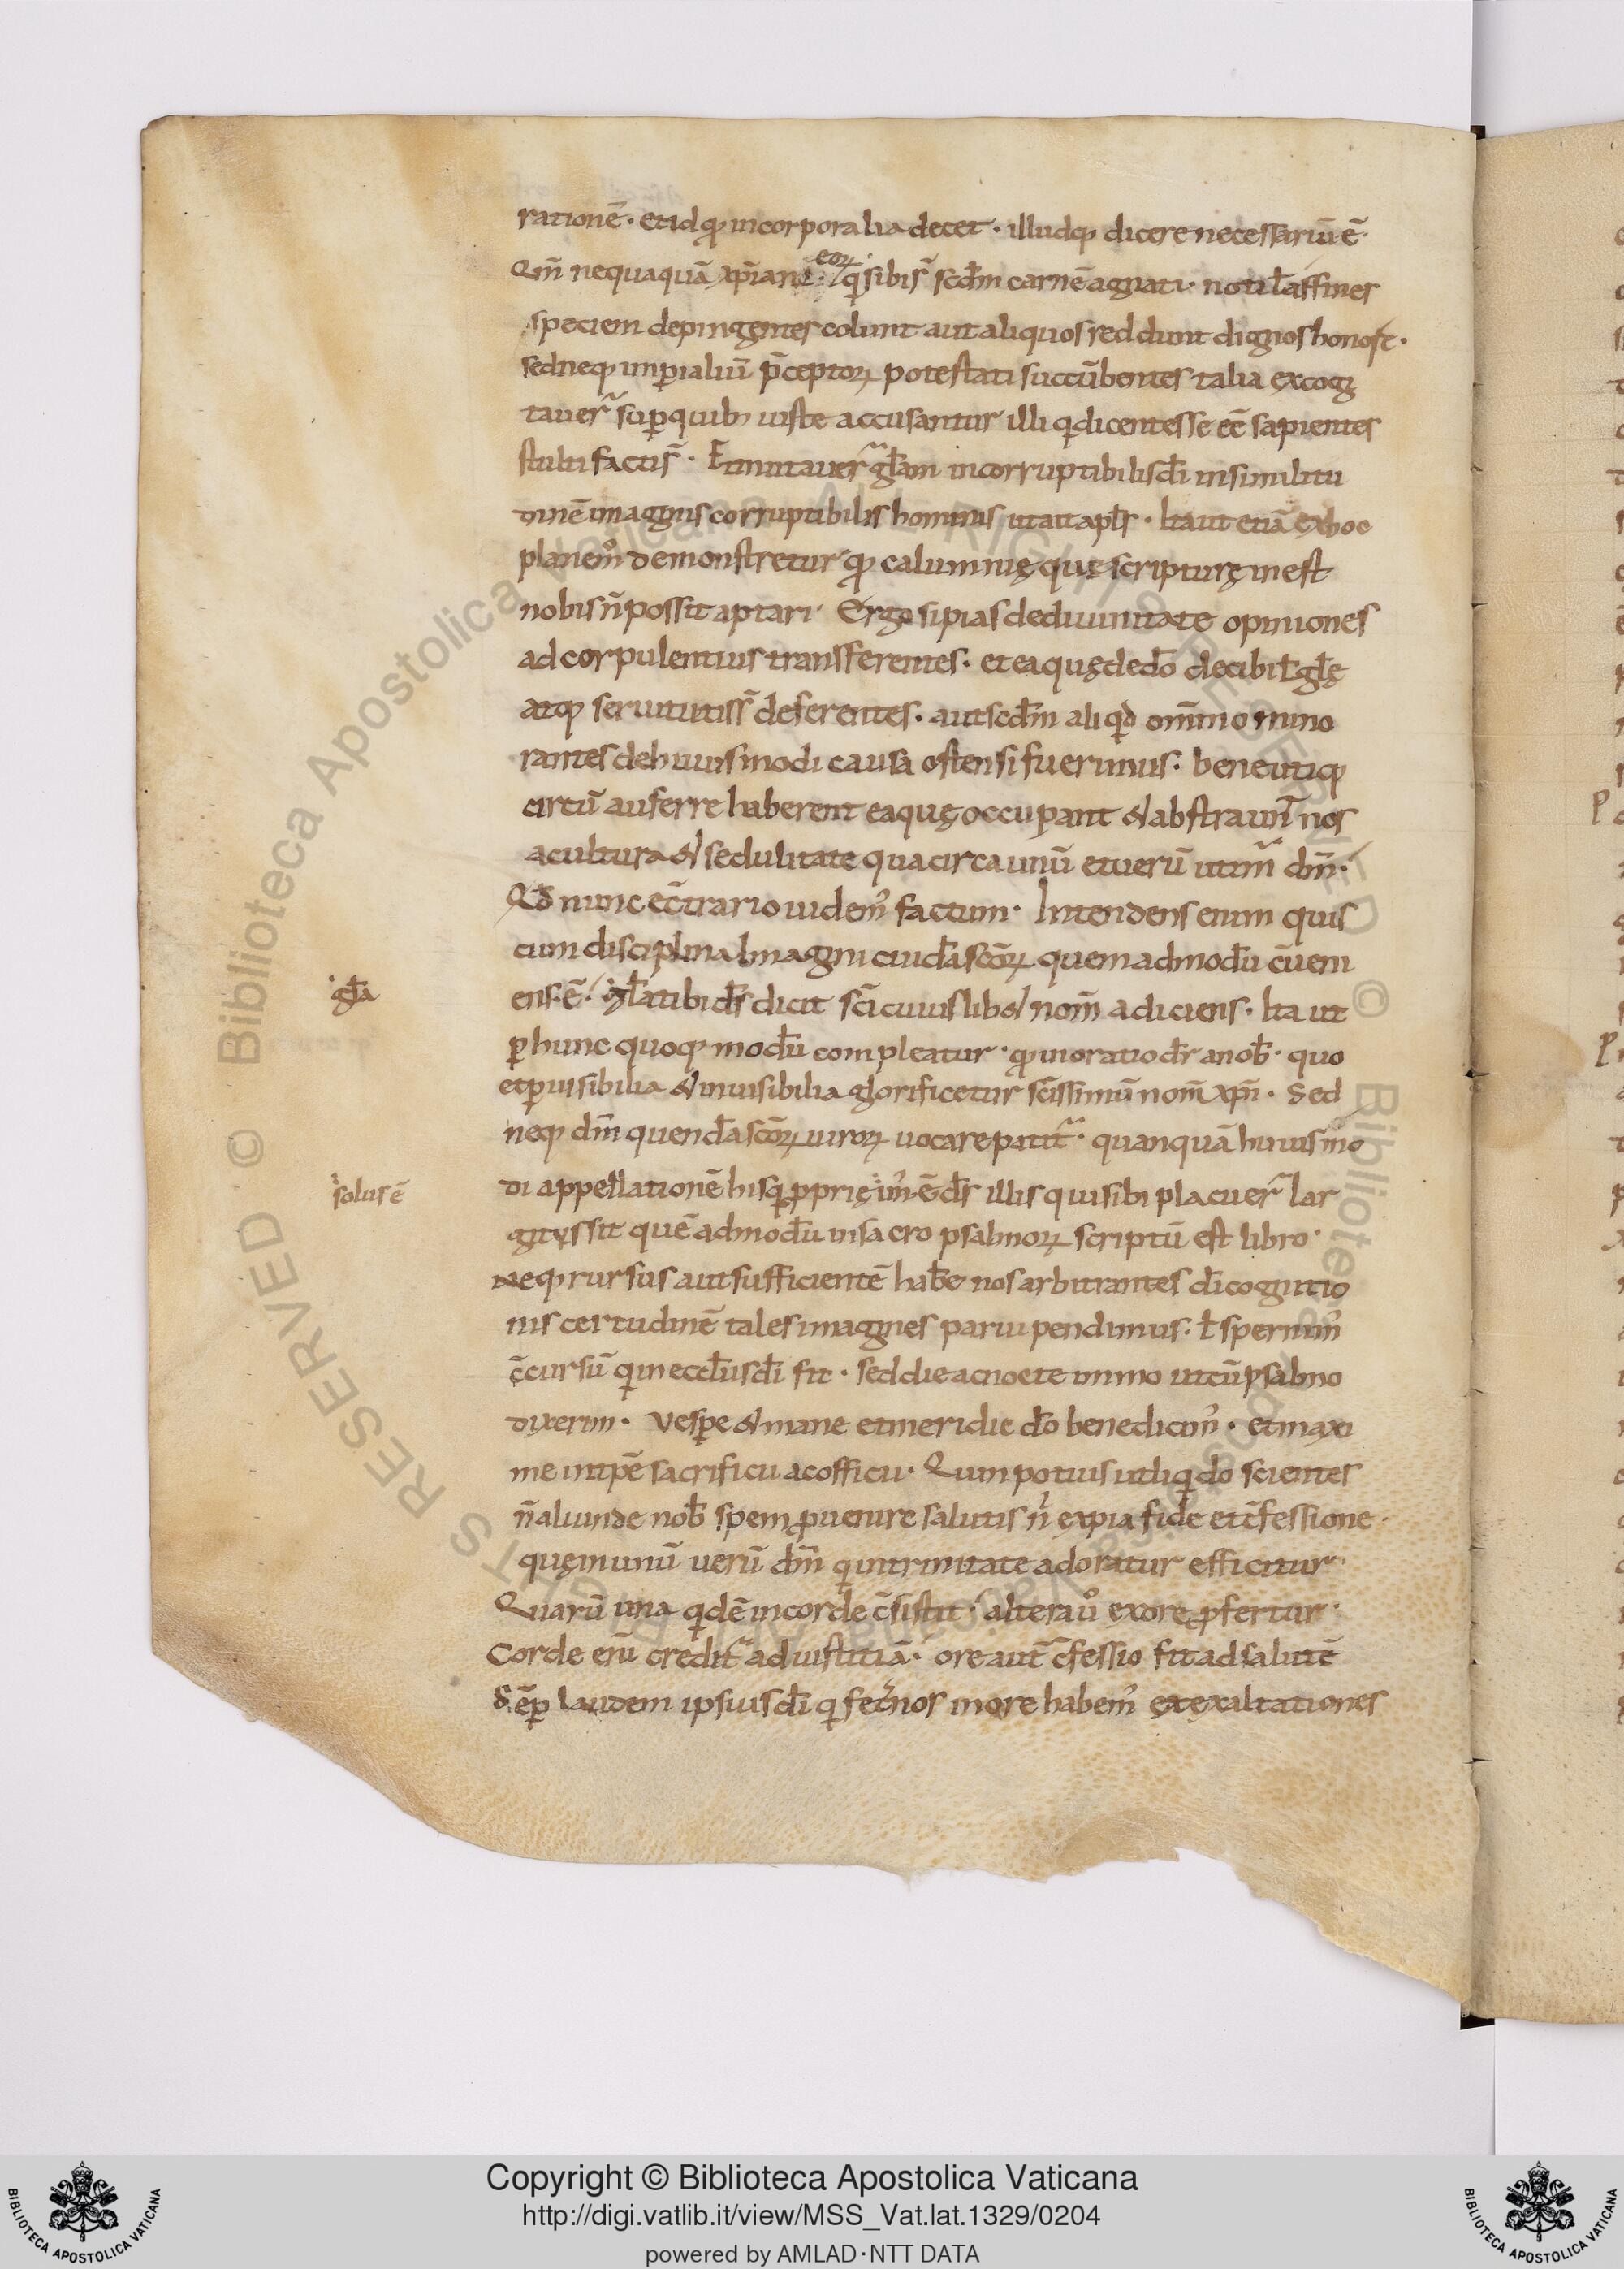 rationē· et id qđ incorporalia decet· illudq; dicere necessariū ē·
Qm̄ nequaquā xp̄iani eoꝝ q̄ sibi s̄ scdm̄ carnē agnati· noti l̄ affines
speciem depingentes colunt aut aliquos reddunt dignos honore·
sed neq; imꝑialiū p̄ceptoꝝ potestati succūbentes talia excogi
tauer̄ suꝑ quib; iuste accusantur illi q̇ dicentes se eē sapientes
stulti facti s̄· Et mutauer̄ gl̄am incorruptibilis dī in similitu
dinē imaginis corruptibilis hominis ut ait apl̄s· Ita ut etiā ex hoc
planem̄ demonstretur qđ calumnię quę scripturę inest
nobis n̄ possit aptari· Ergo si pias de diuinitate opiniones
ad corpulentius transferentes· et ea quę de dō decibił gl̄ę
atq; seruitutis s̄ deferentes· aut scdm̄ aliqđ omīno mino
rantes de huiusmodi causa ostensi fuerimus· bene utiq;
circū auferre haberent ea quę occupant & abstraun̄t nos
a cultura & sedulitate qua circa unū et uerū utim̄ dm̄·
Qđ nunc ec̄trario uidem; factum· Intendens enim quis
cum disciplina Imagini cuiusdā scōꝝ quemadmodū c̄ueni
ens ē· gl̄a tibi dſ dicit sc̄i cuiuslib& nom̄ adiciens· Ita ut
ꝑ hunc quoq; modū compleatur· qđ in oratio dr̄ a nob̄· quo
et ꝑ uisibilia & inuisibilia glorificetur sc̄issimū nom̄ xp̄i· Sed
neq; dm̄ quendā scōꝝ uiroꝝ uocare patit̄· quanquā huiusmo
di appellationē his q̇ ꝓprię im̄ ē dſ illis qui sibi placuer̄ lar
gitus sit quē admodū in sacro psalmoꝝ scriptū est libro·
neq; rursus aut sufficientē habe nos arbitrantes dī cognitio
nis certudinē tales imagines parui pendimus· l̄ spernim;
c̄cursū q̇ in eccl̄iis dī fit· sed die ac nocte immo ut cū psalmo
dixerim· Vespe & mane et meridie dō benedicim;· et maxi
me in tp̄e sacrificii ac officii· Quin potius ut liq̇do scientes
n̄ aliunde nob̄ spem ꝓuenire salutis n̄ ex pia fide et c̄fessione
quę in unū uerū dm̄ q̇ in trinitate adoratur efficitur·
Quarū una q̇dē in corde c̄sistit· altera uō ex ore ꝓfertur·
Corde enī credit̄ ad iustitiā· ore aut̄ c̄fessio fit ad salutē
Sēꝑ laudem ipsius dī q̇ fecit nos in ore habem; et exaltationes
gl̄a
solus ē
Copyright © Biblioteca Apostolica Vaticana
http://digi.vatlib.it/view/MSS_Vat.lat.1329/0204
powered by AMLAD·NTT DATA
BIBLIOTECA APOSTOLICA VATICANA
BIBLIOTECA APOSTOLICA VATICANA